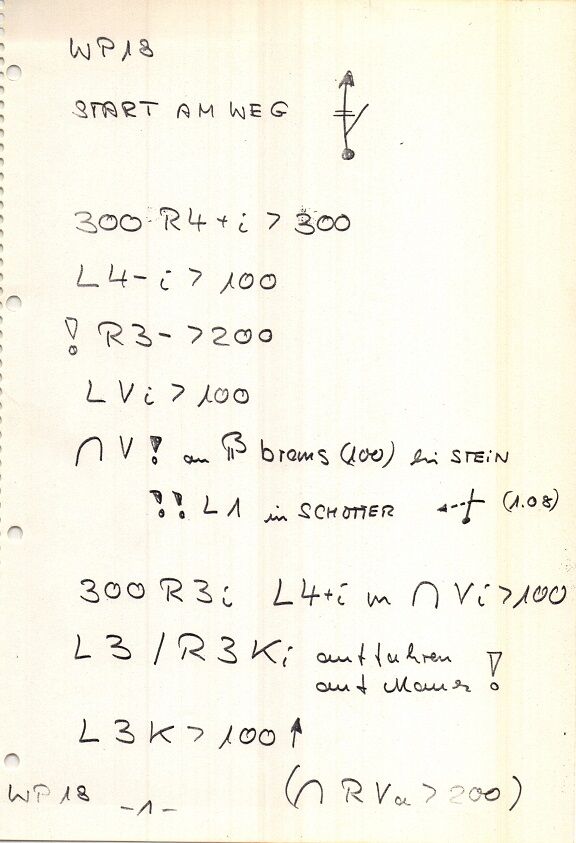 WP18
START AM WEG
300 R4+i > 300
L4- i > 100
! R3- > 200
L Vi > 100
∩ V! an brems (100) bei STEIN
!! L1 in SCHOTTER (1.08)
300 R3i L4+i in ∩ Vi > 100
L3 / R3Ki auffahren
auf Mauer !
L3K > 100 ↑
WP18 -1- (∩ RVa > 200)